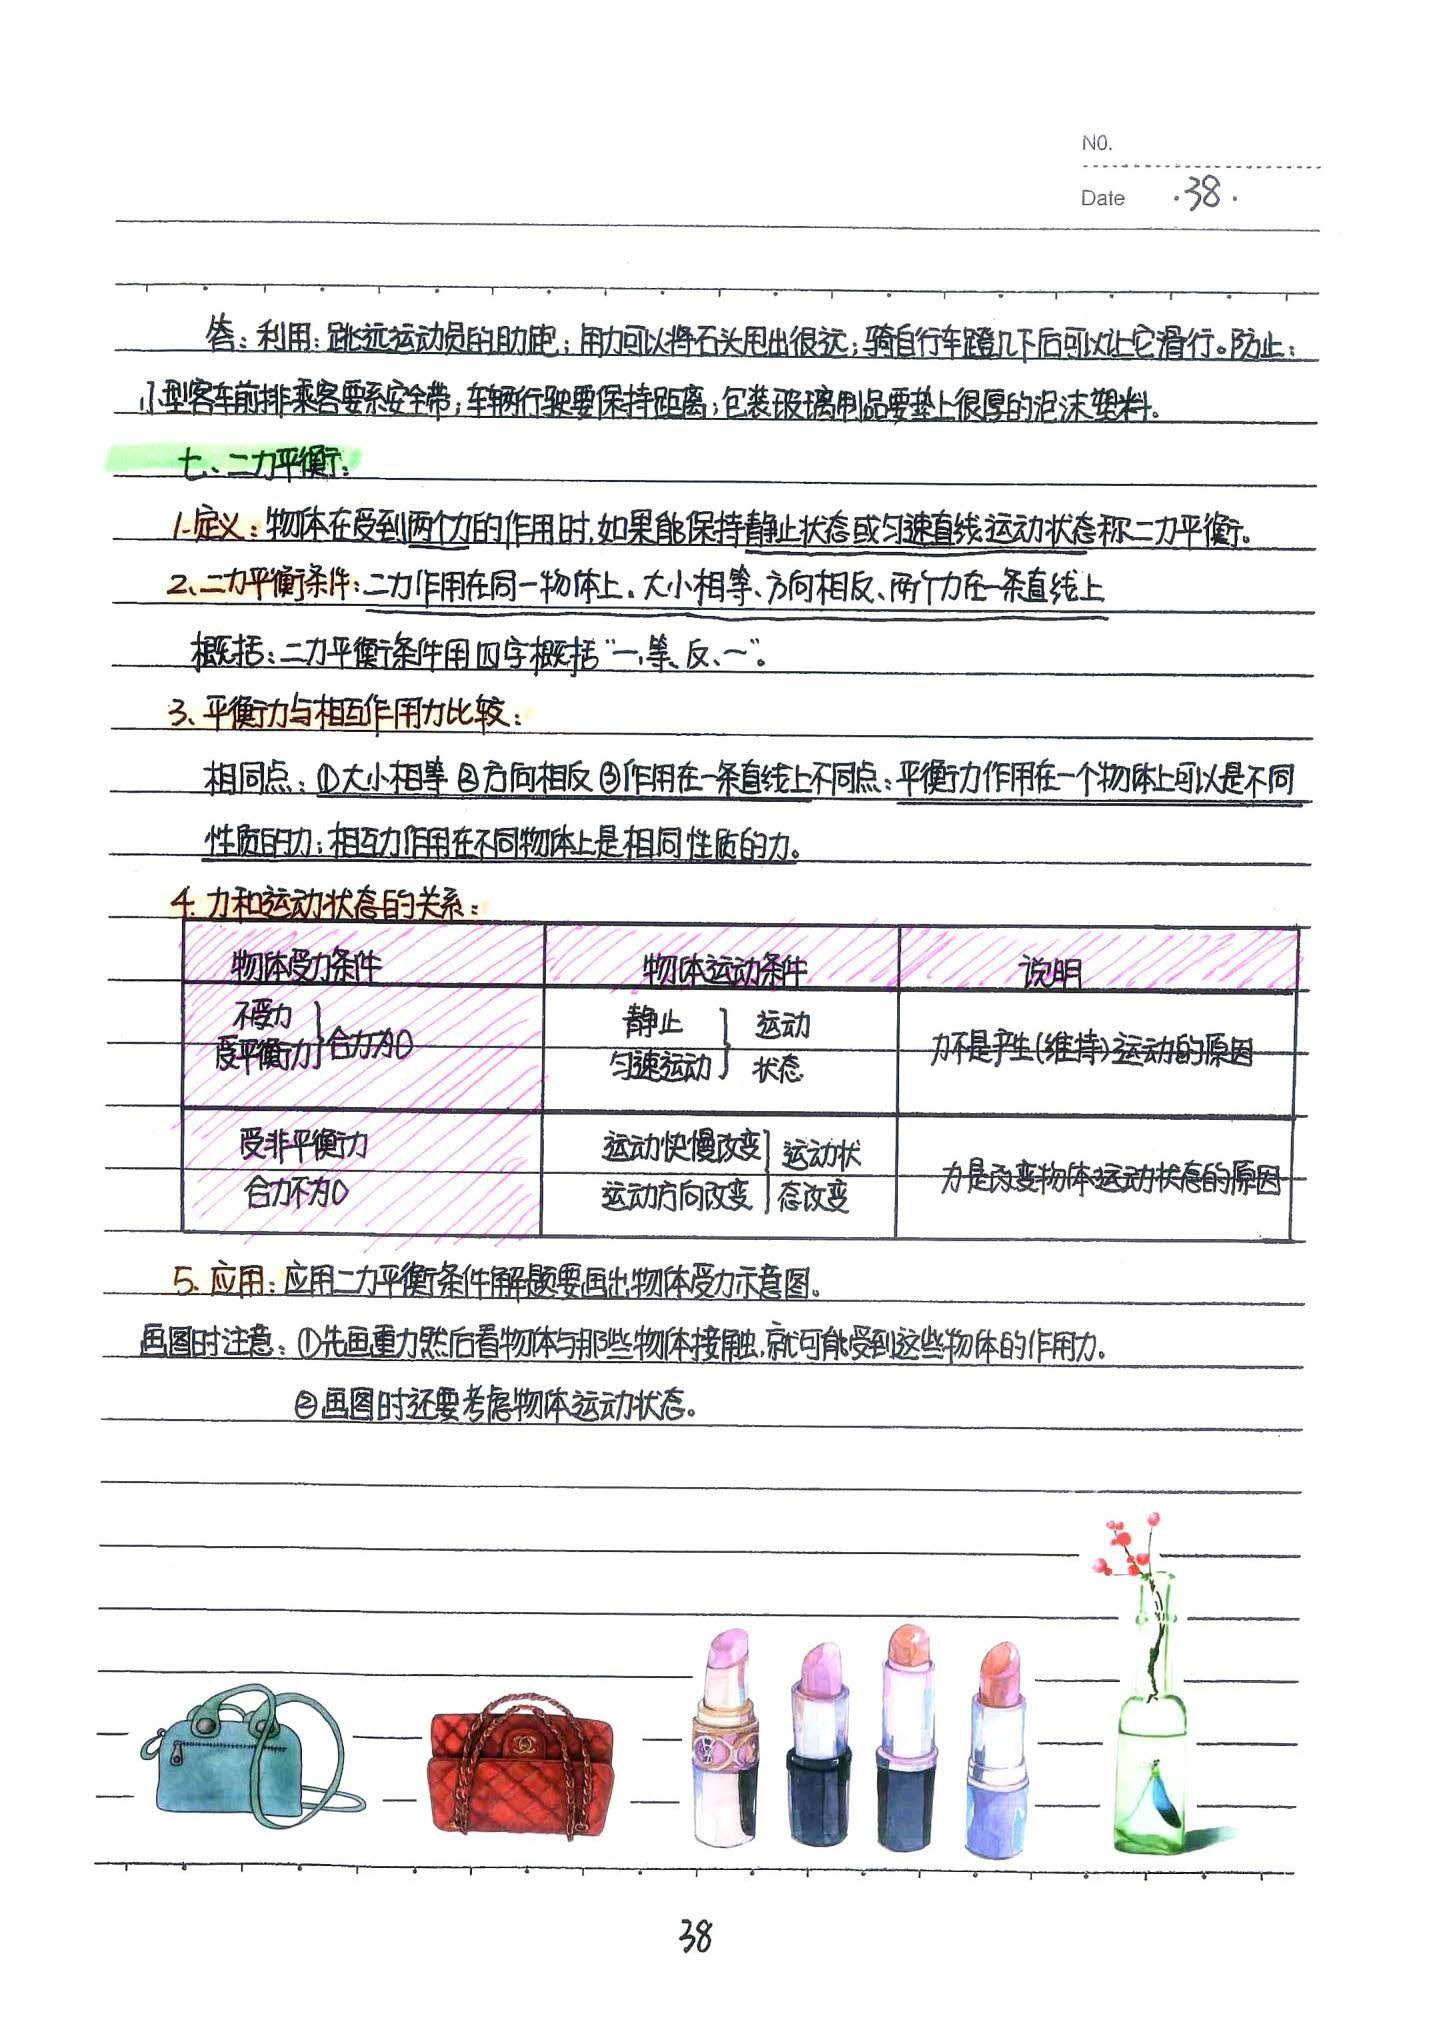 NO.
Date ·38·
答：利用：跳远运动员的助跑；用力可以将石头甩出很远；骑自行车蹬几下后可以让它滑行。防止：
小型客车前排乘客要系安全带；车辆行驶要保持距离；包装玻璃制品要垫上很厚的泡沫塑料。
七、二力平衡：
1.定义：物体在受到两个力的作用时，如果能保持静止状态或匀速直线运动状态称二力平衡。
2、二力平衡条件：二力作用在同一物体上。大小相等、方向相反、两个力在一条直线上
概括：二力平衡条件用四字概括“一、等、反、一”。
3、平衡力与相互作用力比较：
相同点：①大小相等②方向相反③作用在一条直线上不同点：平衡力作用在一个物体上可以是不同
性质的力；相互力作用在不同物体上是相同性质的力。
4. 力和运动状态的关系：
物体受力条件 物体运动条件 说明
不受力
受平衡力 } 合力为0
静止
匀速运动 } 运动
状态
力不是产生(维持)运动的原因
受非平衡力
合力不为0
运动快慢改变
运动方向改变 } 运动状
态改变
力是改变物体运动状态的原因
5. 应用：应用二力平衡条件解题要画出物体受力示意图。
画图时注意：①先画重力然后看物体与那些物体接触，就可能受到这些物体的作用力。
②画图时还要考虑物体运动状态。
38